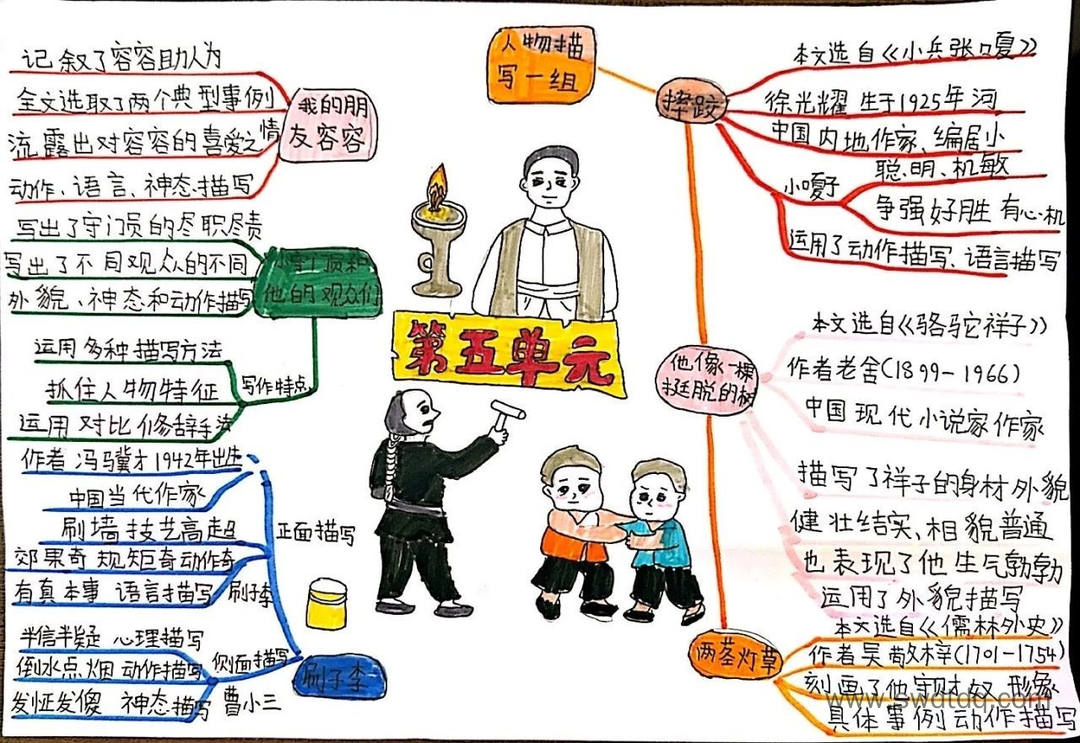 人物描
写一组
摔跤
本文选自《小兵张嘎》
徐光耀 生于1925年河
中国内地作家、编居小
小嘎子
聪明、机敏
争强好胜 有心机
运用了动作描写、语言描写
他像一棵
挺脱的树
本文选自《骆驼祥子》
作者老舍(1899-1966)
中国现代小说家作家
描写了祥子的身材外貌
健壮结实、相貌普通
也表现了他生气勃勃
运用了外貌描写
两茎灯草
本文选自《儒林外史》
作者吴敬梓(1701-1754)
刻画了他守财奴形象
具体事例动作描写
我的朋
友容容
记叙了容容助人为
全文选取了两个典型事例
流露出对容容的喜爱之情
动作、语言、神态描写
小守门员和
他的观众们
写出了守门员的尽职尽责
写出了不同观众的不同
外貌、神态和动作描写
写作特点
运用多种描写方法
抓住人物特征
运用对比修辞手法
第五单元
刷子李
作者 冯骥才1942年出生
中国当代作家
正面描写
刷墙技艺高超
郊果奇 规矩奇动作奇
有真本事 语言描写 刷李
侧面描写
半信半疑 心理描写
倒水点烟 动作描写
发怔发傻 神态描写 曹小三
www.swdtdq.com